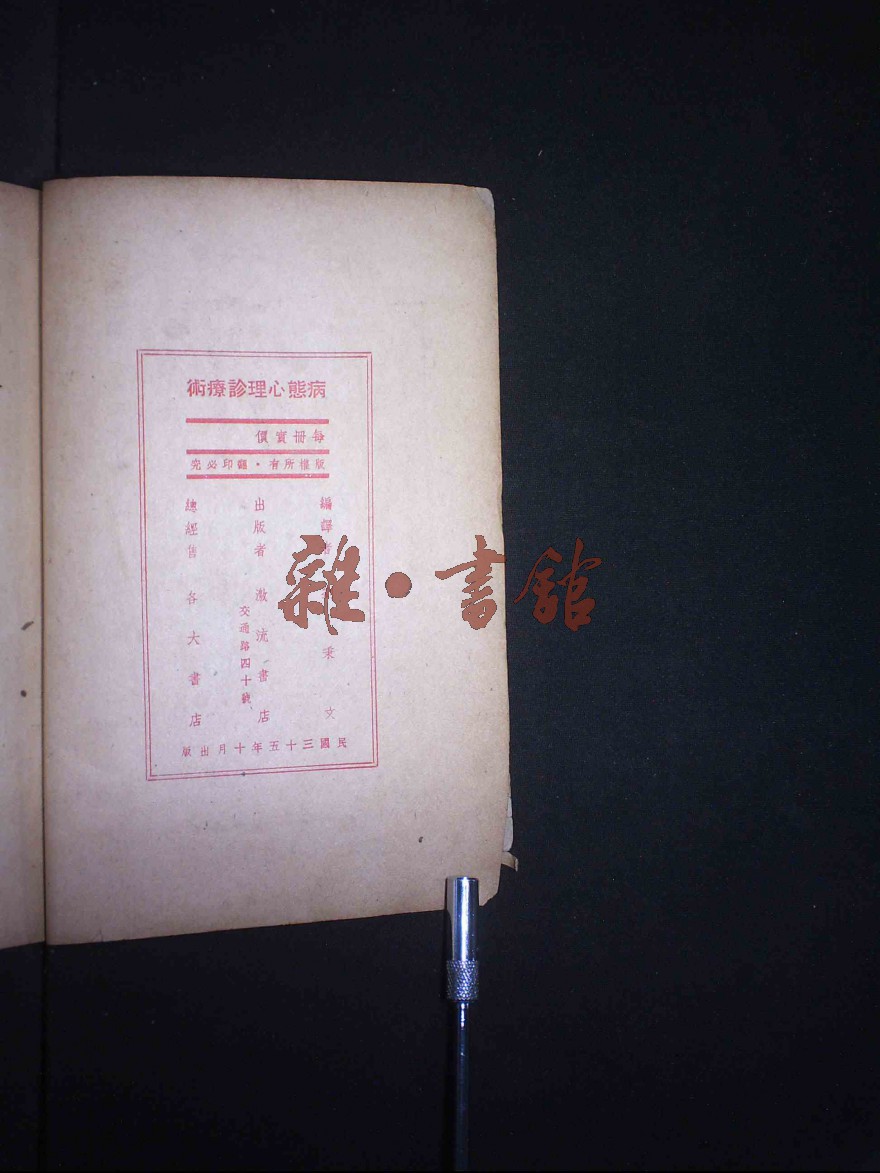 病態心理診療術
每冊實價
版權所有・翻印必究
編譯者 秉文
出版者 激流書店
交通路四十號
總經售 各大書店
民國三十五年十月出版
雜・書館